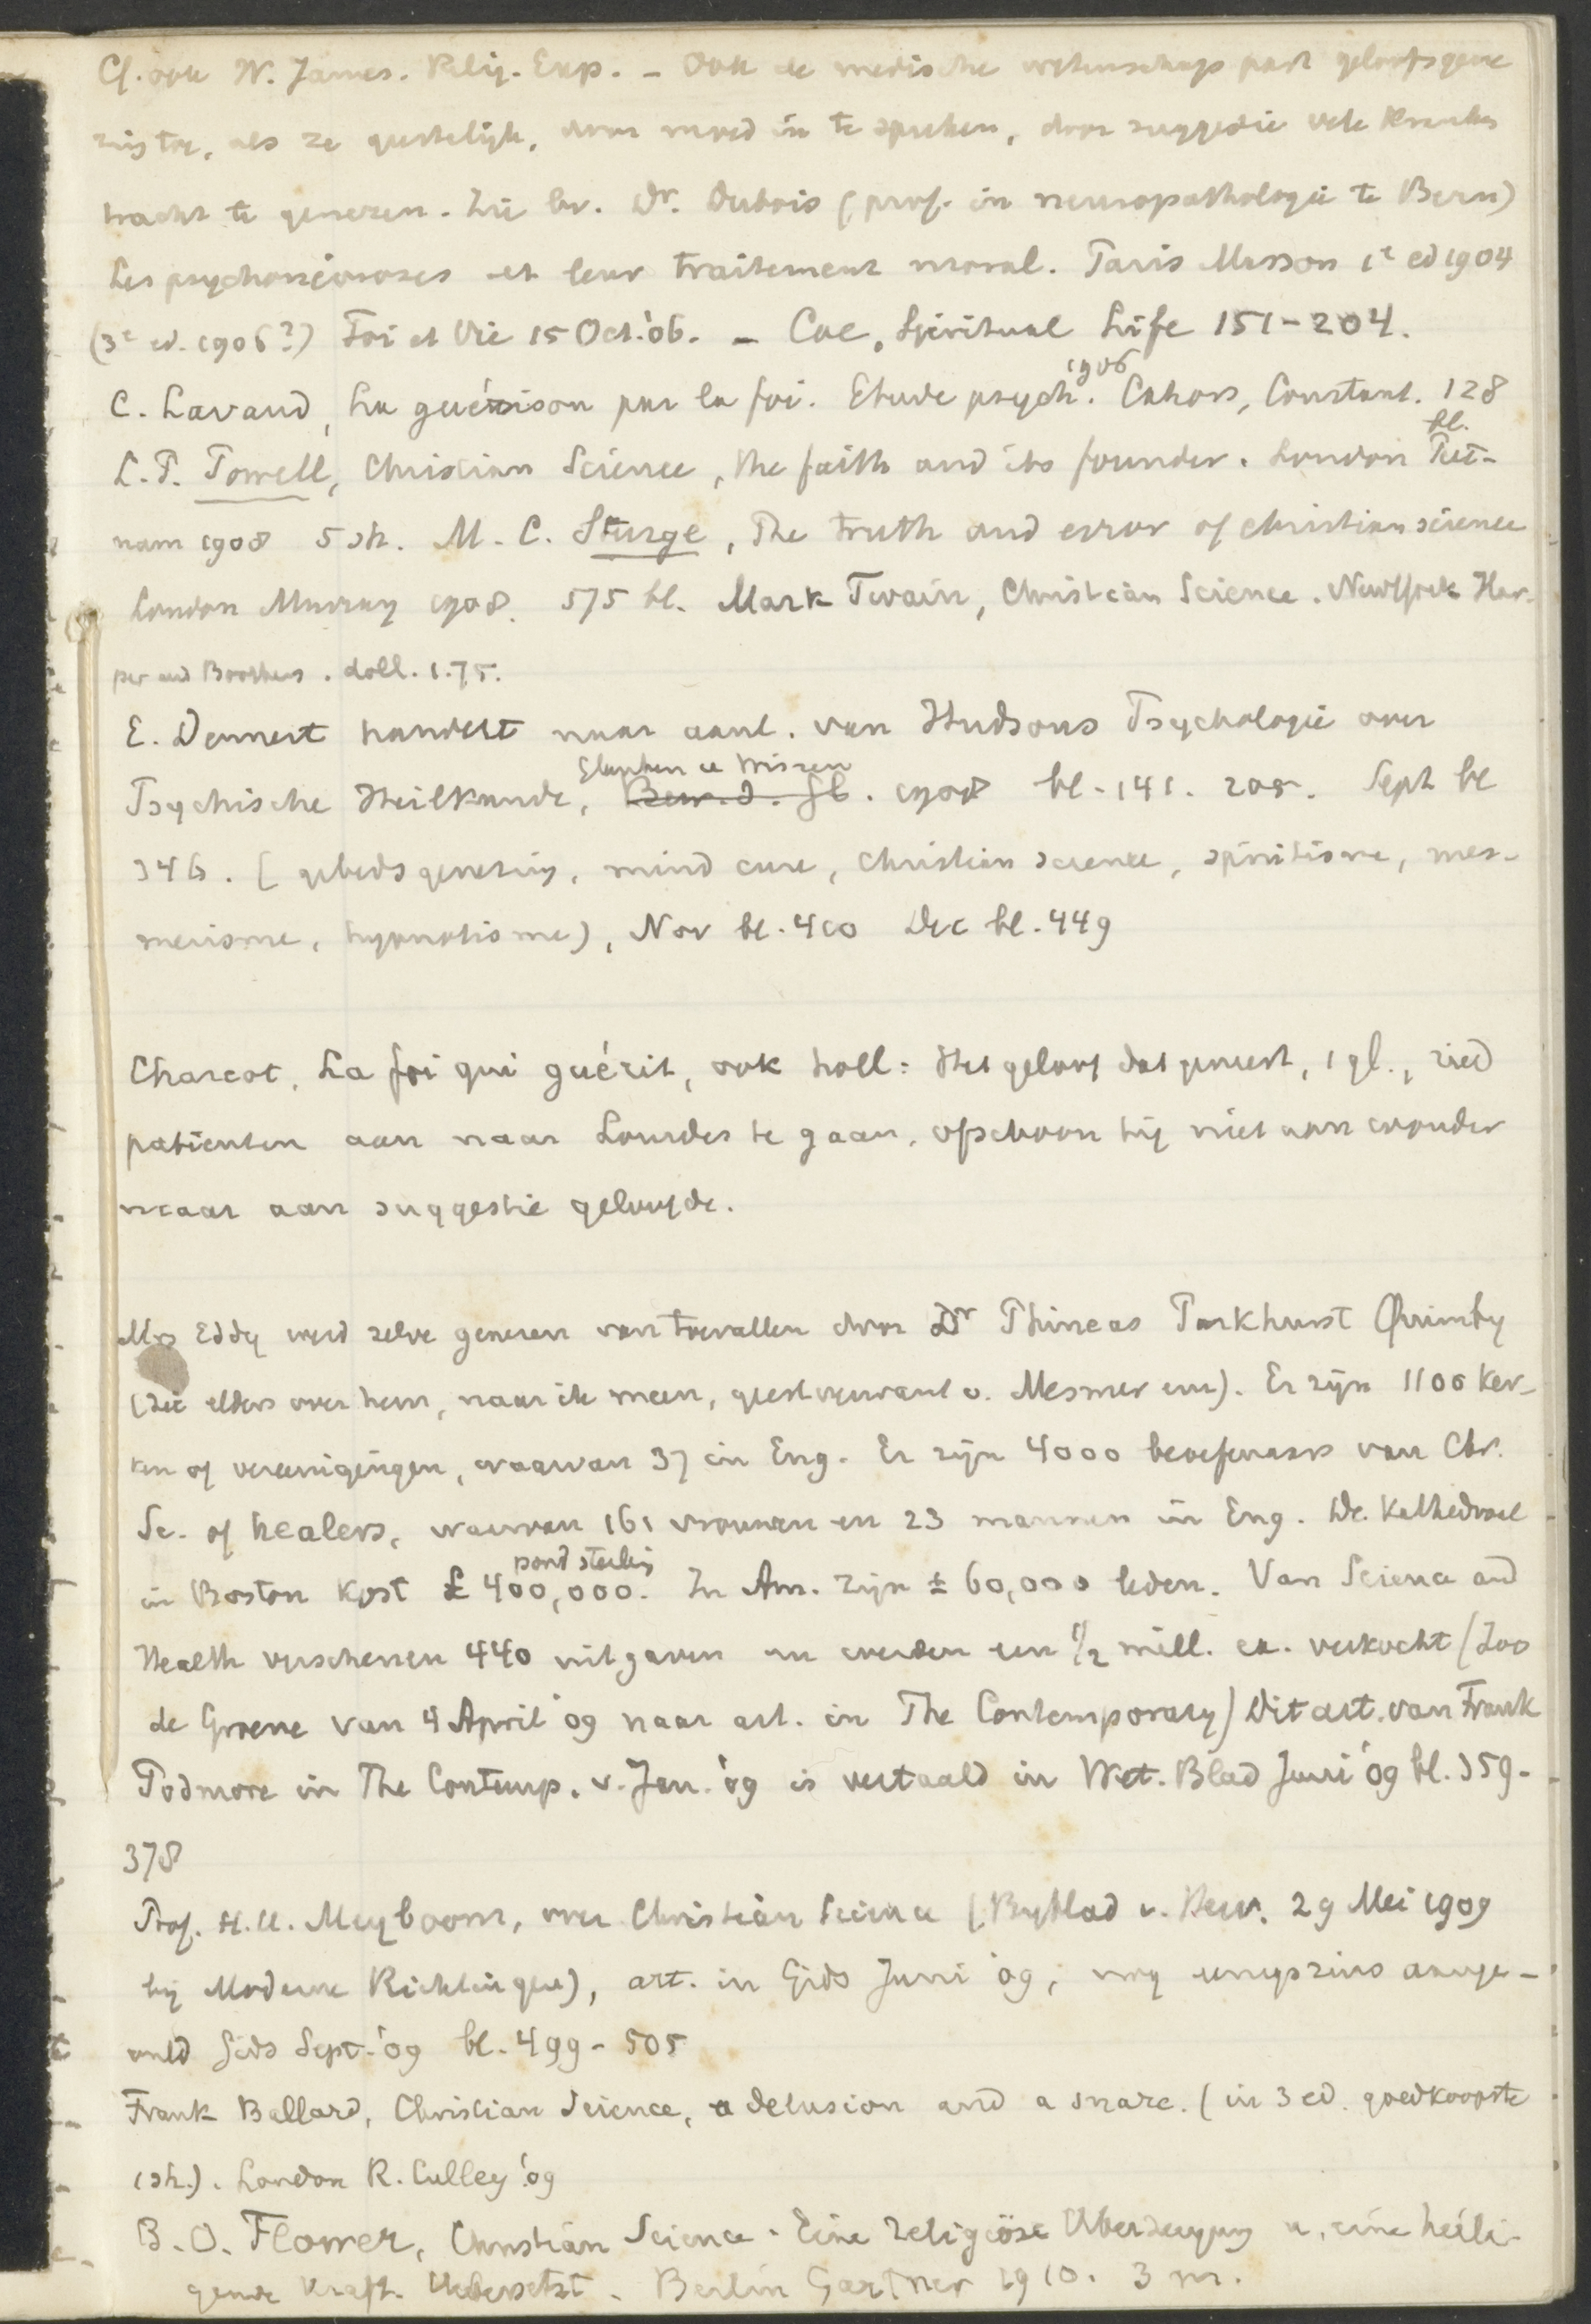 Cf. ook W. James. Relig. Exp. – Ook de medische wetenschap past geloofsgene
zing toe, als ze geestelijk, door moed in te spreken, door suggestie vele kranken
tracht te genezen. Zie bv. Dr. Dubois (prof. in neuropathologie te Bern)
Les psychonévroses et leur traitement moral. Paris Masson 1e ed 1904
(3e ed. 1906?) Foi et Vie 15 Oct. '06. – Coe, Spiritual Life 151-204.
C. Lavaud, La guérison par la foi. Etude psych. 1906 Cahors, Coustant. 128 bl.
L.P. Powell, Christian Science, the faith and its founder. London Put-
nam 1908 5 sh. M. C. Sturge, The truth and error of christian science
London Murray 1908. 575 bl. Mark Twain, Christian Science. NewYork Har-
per and Brothers. doll. 1.75.
E. Dennert handelt naar aanl. van Hudsons Psychologie over
Psychische Heilkunde, Bew. d. Gl. Glauben u Wissen 1908 bl. 141. 205. Sept bl
346. (gebedsgenezing, mind cure, christian science, spiritisme, mes-
merisme, hypnotisme), Nov bl. 410 Dec bl. 449
Charcot, La foi qui guérit, ook holl: Het geloof dat geneest, 1 gl., ried
patienten aan naar Lourdes te gaan, ofschoon hij niet aan wonder
maar aan suggestie geloofde.
Mrs Eddy werd zelve genezen van toevallen door Dr Phineas Parkhurst Quimby
(zie elders over hem, naar ik meen, geestverwant v. Mesmer enz). Er zijn 1100 ker-
ken of vereenigingen, waarvan 37 in Eng. Er zijn 4000 beoefenaars van Chr.
Sc. of healers, waarvan 161 vrouwen en 23 mannen in Eng. De Kathedraal
in Boston kost £ 400,000. pond sterling In Am. zijn ± 60,000 leden. Van Science and
Health verschenen 440 uitgaven en werden een 1/2 mill. ex. verkocht (Zoo
de Groene van 4 April '09 naar art. in The Contemporary) Dit art. van Frank
Podmore in The Contemp. v. Jan. '09 is vertaald in Wet. Blad Juni '09 bl. 359-
378
Prof. H.U. Meyboom, over Christian Science (Byblad v. Herv. 29 Mei 1909
bij Moderne Richting), art. in Gids Juni '09, nog eenigszins aange-
vuld Gids Sept. '09 bl. 499-505
Frank Ballard, Christian Science, a delusion and a snare. (in 3 ed. goedkoopste
1 sh.). London R. Culley '09
B. O. Flower, Christian Science. Eine religiöse Uberzeugung u. eine heili-
gende Kraft. Uebersetzt. Berlin Gartner 1910. 3 m.